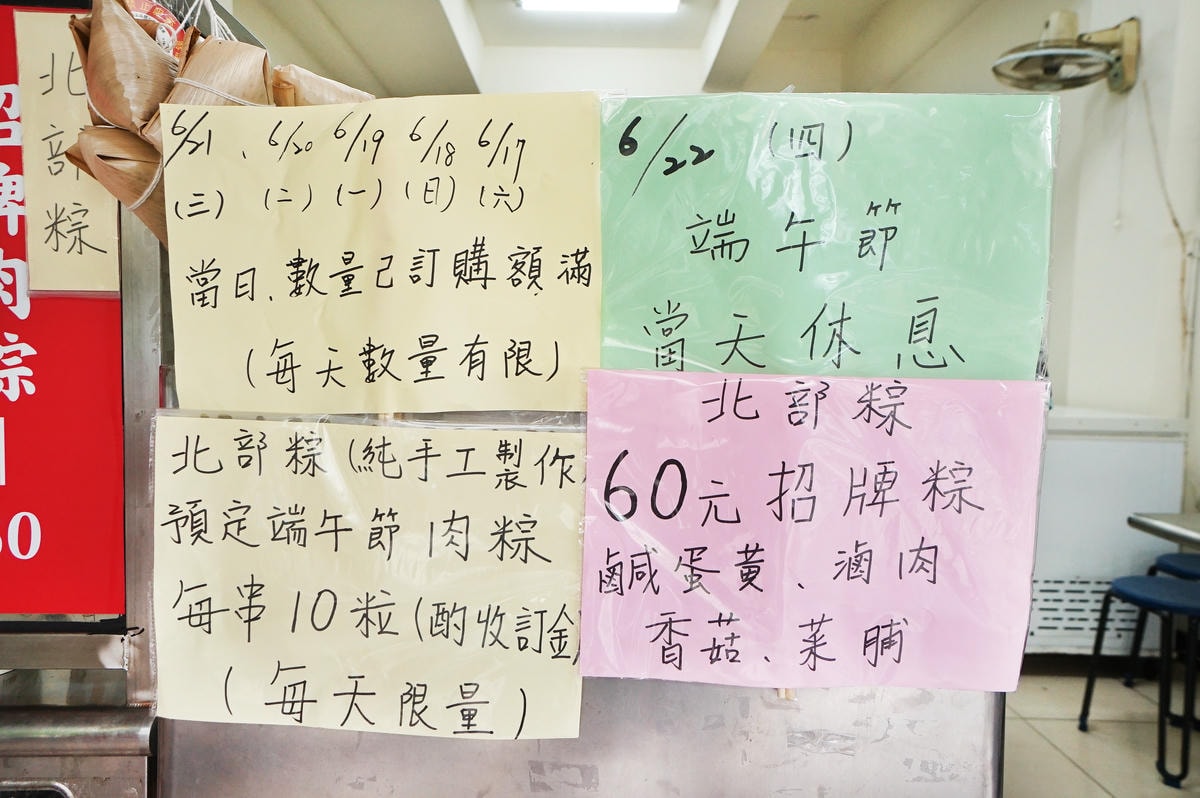 北部粽
招牌肉粽
6/21、6/20 6/19 6/18 6/17
(三) (二) (一) (日) (六)
當日、數量已訂購額滿
(每天數量有限)
6/22 (四)
端午節
當天休息
北部粽(純手工製作)
預定端午節肉粽
每串10粒(酌收訂金)
(每天限量)
北部粽
60元招牌粽
鹹蛋黃、滷肉
香菇、菜脯